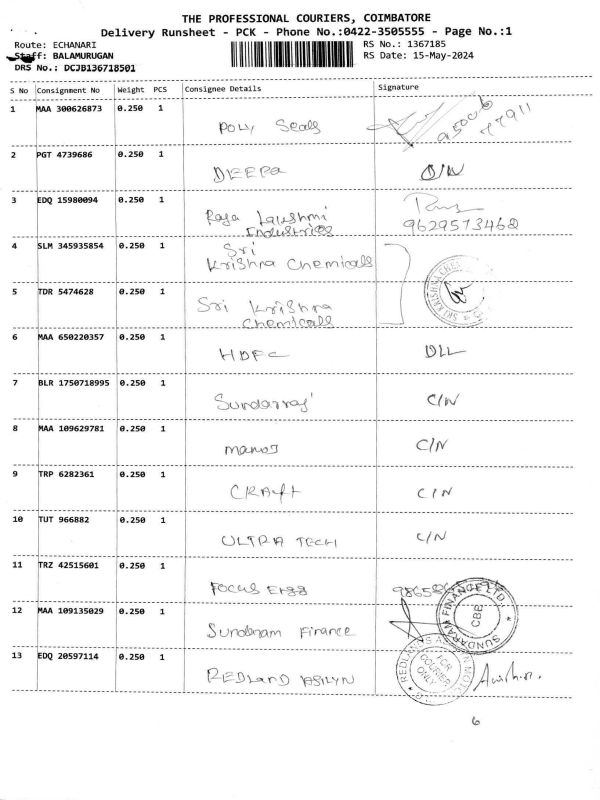 THE PROFESSIONAL COURIERS, COIMBATORE
Delivery Runsheet - PCK - Phone No.:0422-3505555 - Page No.:1
Route: ECHANARI RS No.: 1367185
Staff: BALAMURUGAN RS Date: 15-May-2024
DRS No.: DCJB136718501
S No Consignment No Weight PCS Consignee Details Signature
1 MAA 300626873 0.250 1
Poly Seals 95006 77911
2 PGT 4739686 0.250 1
DEEPA O/N
3 EDQ 15980094 0.250 1
Raja Lakshmi
Industries 9629573462
4 SLM 345935854 0.250 1 Sri
Krishna Chemicals
5 TDR 5474628 0.250 1
Sri Krishna
Chemicals
SRI KRISHNA CHE
6 MAA 650220357 0.250 1
HDFC DLL
7 BLR 1750718995 0.250 1
Sundarraj C/N
8 MAA 109629781 0.250 1
manoj C/N
9 TRP 6282361 0.250 1
CRAft C/N
10 TUT 966882 0.250 1
ULTRA TECH C/N
11 TRZ 42515601 0.250 1
Focus Engg
12 MAA 109135029 0.250 1
Sundaram Finance
SUNDARAM FINANCE LTD. * CBE *
13 EDQ 20597114 0.250 1
REDLAND ASILYN
FOR COURIER ONLY
6